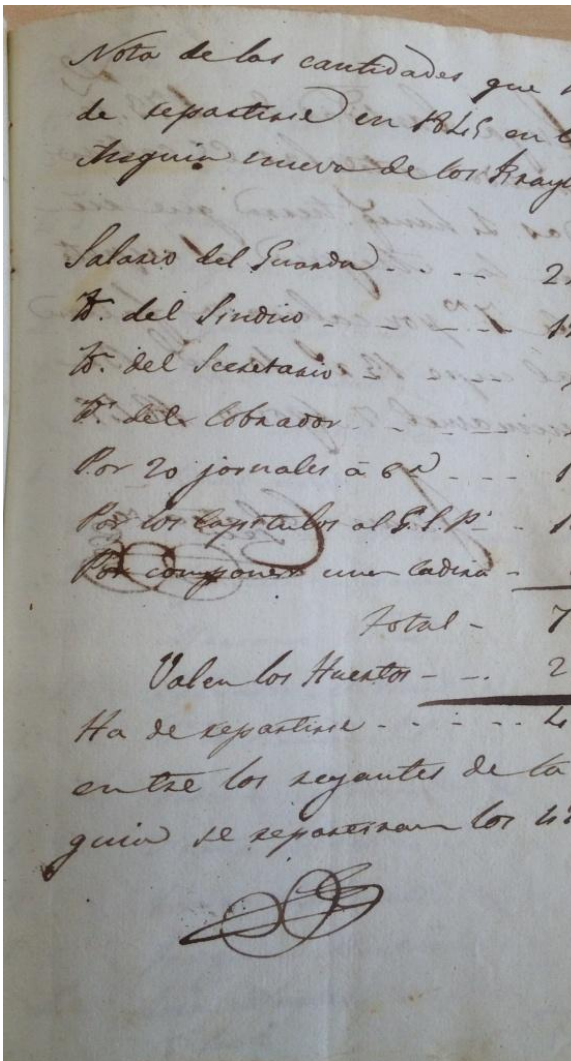 Nota de las cantidades que
de repartirse en 1845 en
Asequia nueva de los Frayl
Salario del Guarda - - - 2
Yd. del Sindico - - - - 1
Yd. del Secretario
Yd. del Cobrador - - -
Por 20 jornales à 6 rs - - - 1
Por los Capitulos al G. S. P. - - 1
Por componer una Cadira -
Total - 7
Valen los Huertos - - . 2
Ha de repartirse - - - - . . 4
entre los regantes de la
quia se repartiran los